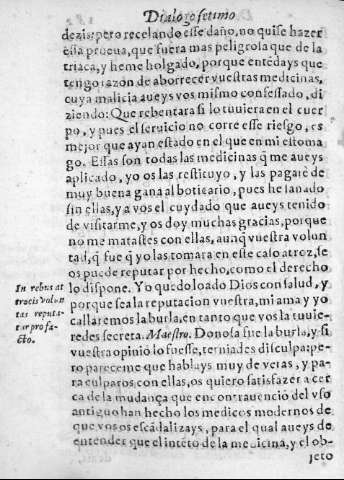 Dialogo setimo
dezis: pero recelando esse daño, no quise hazer
essa prueua, que fuera mas peligrosa que de la
triaca, y heme holgado, porque entēdays que
tengo razon de aborrecer vuestras medicinas,
cuya malicia aueys vos mismo confessado, di
ziendo: Que rebentara si lo tuuiera en el cuer
po, y pues el seruicio no corre esse riesgo, es
mejor que ayan estado en el que en mi estoma
go. Essas son todas las medicinas q̃ me aueys
aplicado, yo os las restituyo, y las pagarè de
muy buena gana al boticario, pues he sanado
sin ellas, y a vos el cuydado que aueys tenido
de visitarme, y os doy muchas gracias, porque
no me matastes con ellas, aunq̃ vuestra volun
tad, q̃ fue q̃ yo las tomara en este caso atroz, se
os puede reputar por hecho, como el derecho
In rebus at
trocis volun
tas reputa-
tur pro fa-
cto.
lo dispone. Yo quedo loado Dios con salud, y
porque sea la reputacion vuestra, mi ama y yo
callaremos la burla, en tanto que vos la tuuie-
redes secreta. Maestro. Donosa fue la burla, y si
vuestra opiniō lo fuesse, terniades disculpa: pe-
ro pareceme que hablays muy de veras, y pa-
ra culparos con ellas, os quiero satisfazer acer
ca de la mudança que en contrauenciō del vso
antiguo han hecho los medicos modernos de
que vos os escādalizays, para el qual aueys de
entender que el intēto de la medicina, y el ob-
jeto